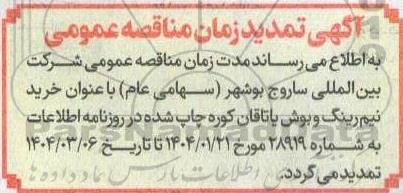 آگهی تمدید زمان مناقصه عمومی
به اطلاع می رساند مدت زمان مناقصه عمومی شرکت
بین المللی ساروج بوشهر (سهامی عام) با عنوان خرید
نیم رینگ و بوش یاتاقان کوره چاپ شده در روزنامه اطلاعات
به شماره ۲۸۹۱۹ مورخ ۱۴۰۴/۰۱/۲۱ تا تاریخ ۱۴۰۴/۰۳/۰۶
تمدید می گردد.